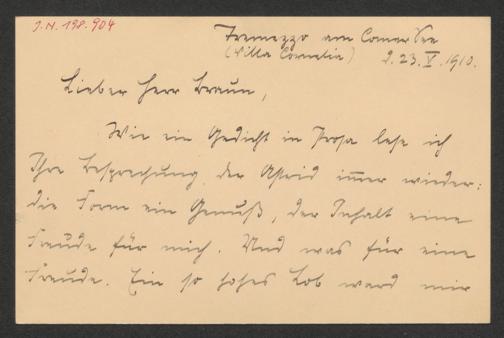 J.N. 198.904
Tremezzo am Comer See
(Villa Cornelia) 23. V. 1910.
Lieber Herr Braun,
Wie ein Gedicht in Prosa lese ich
Ihre Besprechung der Astrid immer wieder:
die Form ein Genuß, der Inhalt eine
Freude für mich. Und was für eine
Freude. Ein so hohes Lob ward mir